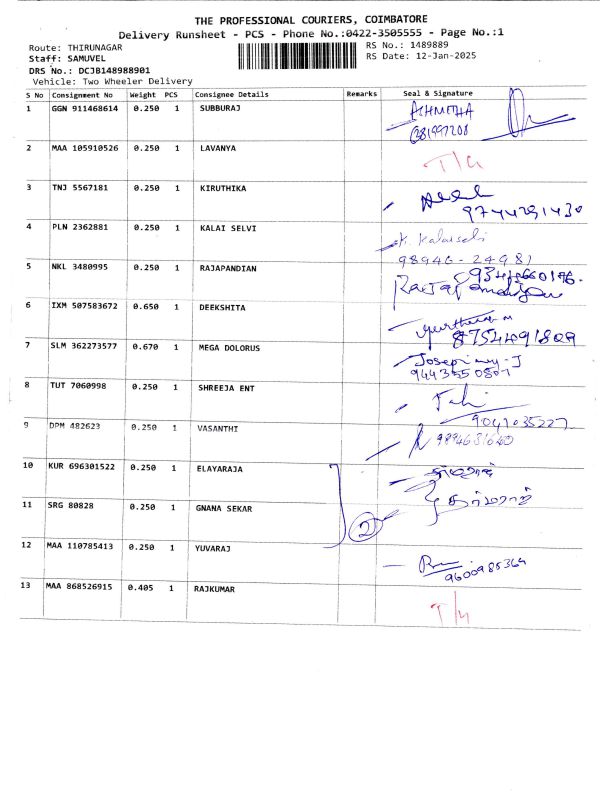 THE PROFESSIONAL COURIERS, COIMBATORE
Delivery Runsheet - PCS - Phone No.:0422-3505555 - Page No.:1
Route: THIRUNAGAR
RS No.: 1489889
Staff: SAMUVEL
RS Date: 12-Jan-2025
DRS No.: DCJB148988901
Vehicle: Two Wheeler Delivery
S No Consignment No Weight PCS Consignee Details Remarks Seal & Signature
1 GGN 911468614 0.250 1 SUBBURAJ ASHMITHA
2 MAA 105910526 0.250 1 LAVANYA
3 TNJ 5567181 0.250 1 KIRUTHIKA
9744291430
4 PLN 2362881 0.250 1 KALAI SELVI K. Kalaiselvi
98946-24981
5 NKL 3480995 0.250 1 RAJAPANDIAN
6 IXM 507583672 0.650 1 DEEKSHITA
8754491809
7 SLM 362273577 0.670 1 MEGA DOLORUS
9443550807
8 TUT 7060998 0.250 1 SHREEJA ENT
9041035227
9 DPM 482623 0.250 1 VASANTHI 9894681640
10 KUR 696301522 0.250 1 ELAYARAJA
11 SRG 80828 0.250 1 GNANA SEKAR 2
12 MAA 110785413 0.250 1 YUVARAJ
9600985364
13 MAA 868526915 0.405 1 RAJKUMAR